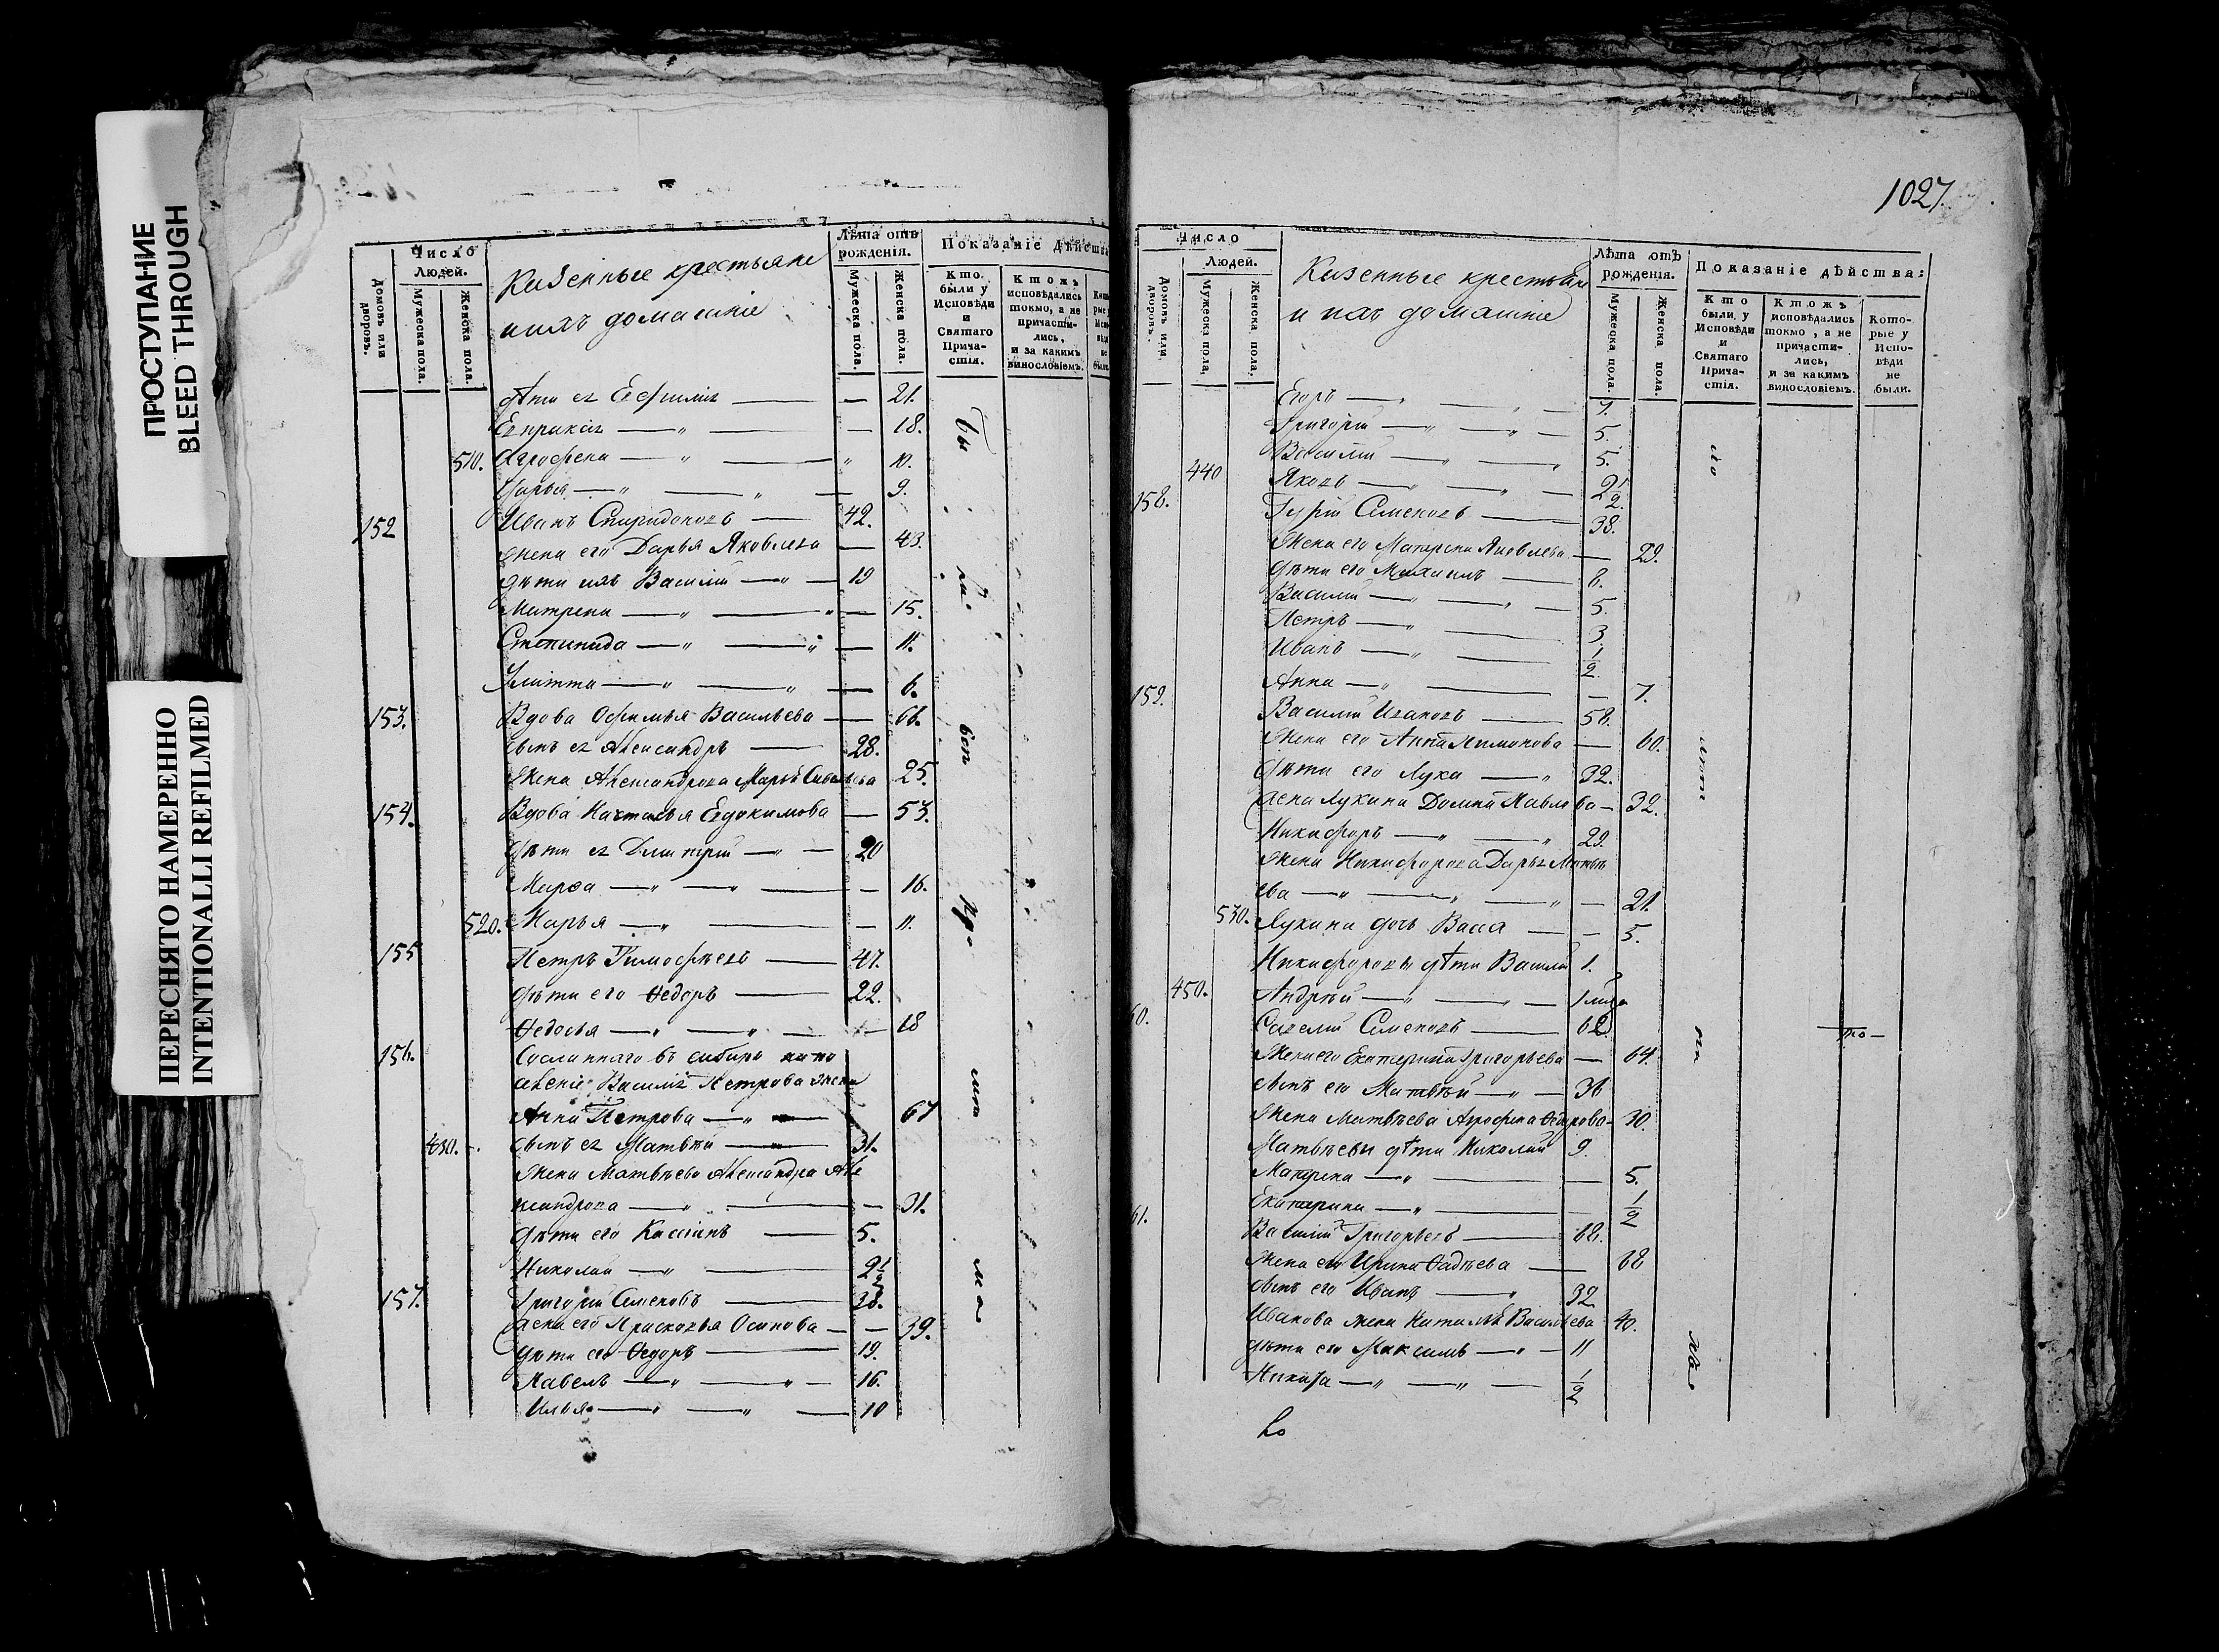 ПРОСТУПАНИЕ
BLEED THROUGH
ПЕРЕСНЯТО НАМЕРЕННО
INTENTIONALLI REFILMED
Число
Людей.
Домовъ или дворовъ.
Мужеска пола.
Женска пола.
Казенные крестьяне
и ихъ домашніе
Лѣта отъ рожденія.
Мужеска пола.
Женска пола.
Показаніе дѣйства
Кто были у Исповѣди и Святаго Причастія.
Ктожъ исповѣдались токмо, а не причастились, и за какимъ винословіемъ.
дѣти ея Ефимія — — 21.
— „ — — 18.
510. Агрофена — „ — „ 10.
Дарья — „ — „ — 9.
152 Иванъ Спиридоновъ — 42.
Жена его Дарья Яковлева — 43.
дѣти ихъ Василій — „ — 19
Матрена — „ — „ — 15.
Степанида — „ — „ — 11.
Улитта — „ — „ — 6.
153. Вдова Офимья Васильева — 66.
сынъ ея Александръ — 28.
Жена Александрова Марья Савельева 25.
154. Вдова Наталья Евдокимова — 53.
дѣти ея Дмитрій — „ — 20
Марѳа — „ — „ — 16.
520. Марья — „ — 11.
155 Петръ Тимофѣевъ — 47.
дѣти его Ѳедоръ — 22.
Ѳедосья — „ — „ — 18
156. Сосланнаго въ сибирь на по
селеніе Василья Петрова жена
Анна Петрова — „ — 67
430. сынъ ея Матвѣй — 31.
Жена Матвѣева Александра Але
ксандрова — „ — 31.
дѣти его Кассіанъ — 5.
Николай — „ 2 1/2
157. Григорій Семеновъ — 38.
жена его Прасковья Осипова — 39.
дѣти его Ѳедоръ — 19.
Павелъ — „ — „ — 16.
Илья — „ — „ — 10
1027.
Число
Людей.
Домовъ или дворовъ.
Мужеска пола.
Женска пола.
Казенные крестьяне
и ихъ домашніе
Лѣта отъ рожденія.
Мужеска пола.
Женска пола.
Показаніе дѣйства:
Кто были у Исповѣди и Святаго Причастія.
Ктожъ исповѣдались токмо, а не причастились, и за какимъ винословіемъ.
Которые у Исповѣди не были.
Егоръ — „ — „ — 7.
Григорій — „ — „ — 5.
Василій — „ — „ 5.
440 Яковъ — „ — „ — 2 1/2.
158. Гурій Семеновъ — 38.
Жена его Матрена Яковлева — 29.
дѣти его Михаилъ — 8.
Василій — „ — „ — 5.
Петръ — „ — 3
Иванъ — „ — 1/2.
Анна — „ — 7.
159. Василій Ивановъ — 58.
Жена его Анна — 60.
дѣти его Лука — „ 32.
жена Лукина Домна Павлова — 32.
Никифоръ — „ — „ 29.
Жена Никифорова Дарья Матвѣ
ева — „ — „ — „ — 21.
530. Лукина дочь Васса — 5.
Никифоровы дѣти Василій 1.
450. Андрѣй — „ — „ —
60. Савелій Семеновъ — 62
Жена его Екатерина Григорьева — 64.
сынъ его Матвѣй — „ — 36
Жена Матвѣева Агрофена Ѳедорова — 30.
Матвѣевы дѣти Николай 9.
Матрена — „ — 5.
Екатерина — „ — 1/2
61. Василій Григорьевъ — 68.
Жена его Ирина Ѳадѣева — 68
сынъ его Иванъ — „ 32
Иванова жена Наталья Васильева 40.
дѣти его Максимъ — „ — 11
Никита — „ — „ — 1/2